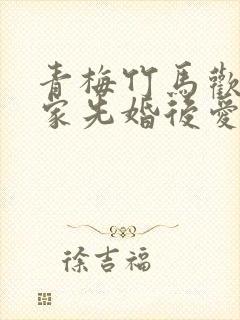 青梅竹馬歡
家先婚後愛
徐吉福